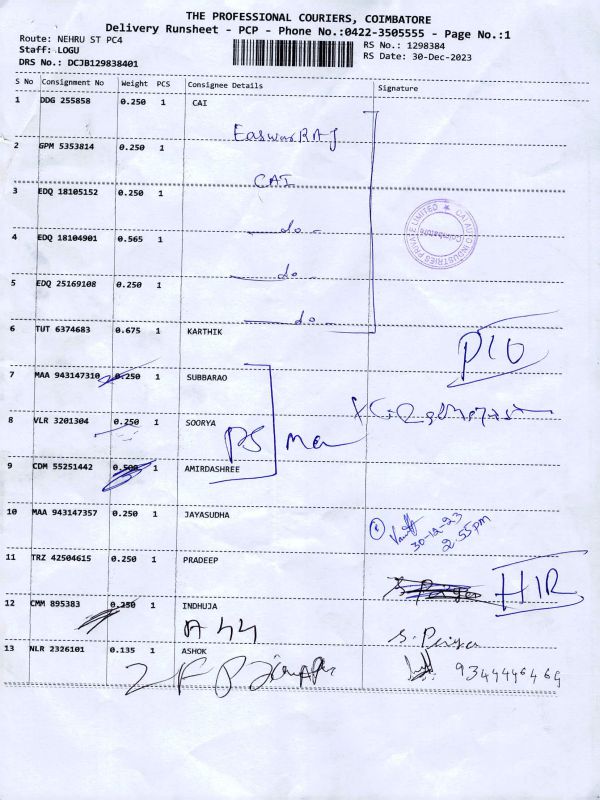 THE PROFESSIONAL COURIERS, COIMBATORE
Delivery Runsheet - PCP - Phone No.:0422-3505555 - Page No.:1
Route: NEHRU ST PC4
RS No.: 1298384
Staff: LOGU
RS Date: 30-Dec-2023
DRS No.: DCJB129838401
S No Consignment No Weight PCS Consignee Details Signature
1 DDG 255858 0.250 1 CAI
EaswarRAJ
2 GPM 5353814 0.250 1
CAI
3 EDQ 18105152 0.250 1
do
CAI AUTO INDUSTRIES PRIVATE LIMITED ★ Coimbatore
4 EDQ 18104901 0.565 1
do
5 EDQ 25169108 0.250 1
do
6 TUT 6374683 0.675 1 KARTHIK
7 MAA 943147310 0.250 1 SUBBARAO
8 VLR 3201304 0.250 1 SOORYA
9 CDM 55251442 0.500 1 AMIRDASHREE
10 MAA 943147357 0.250 1 JAYASUDHA
30-12-23
2:55pm
11 TRZ 42504615 0.250 1 PRADEEP
12 CMM 895383 0.250 1 INDHUJA
A 44
S. Priya
13 NLR 2326101 0.135 1 ASHOK